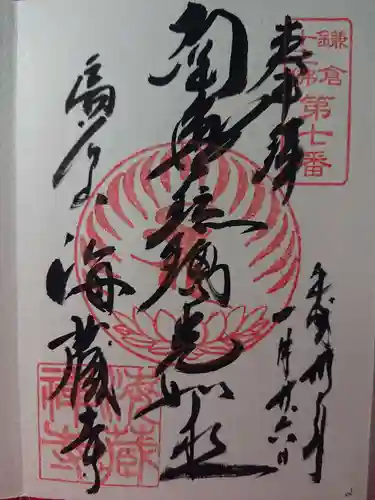 鎌倉
十三佛
第七番
奉拝
南無瑠璃光如来
扇谷山
海蔵寺
平成卅年
一月廿六日
海蔵
禅寺